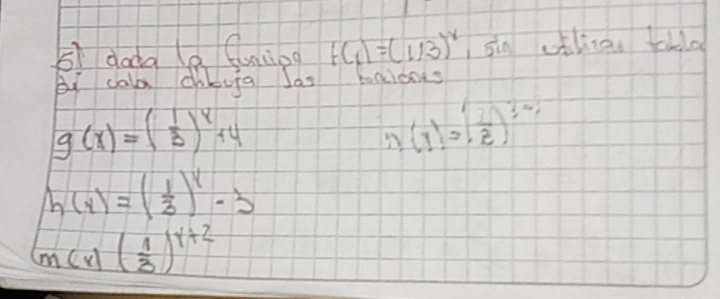 5) dada la función f(x)=(1/3)^x, sin utilizar tabla
de valor dibuja las funciones
g(x) = (1/3)^x + 4
n(x) =
h(x) = (1/3)^x - 3
m(x) (1/3)^x+2